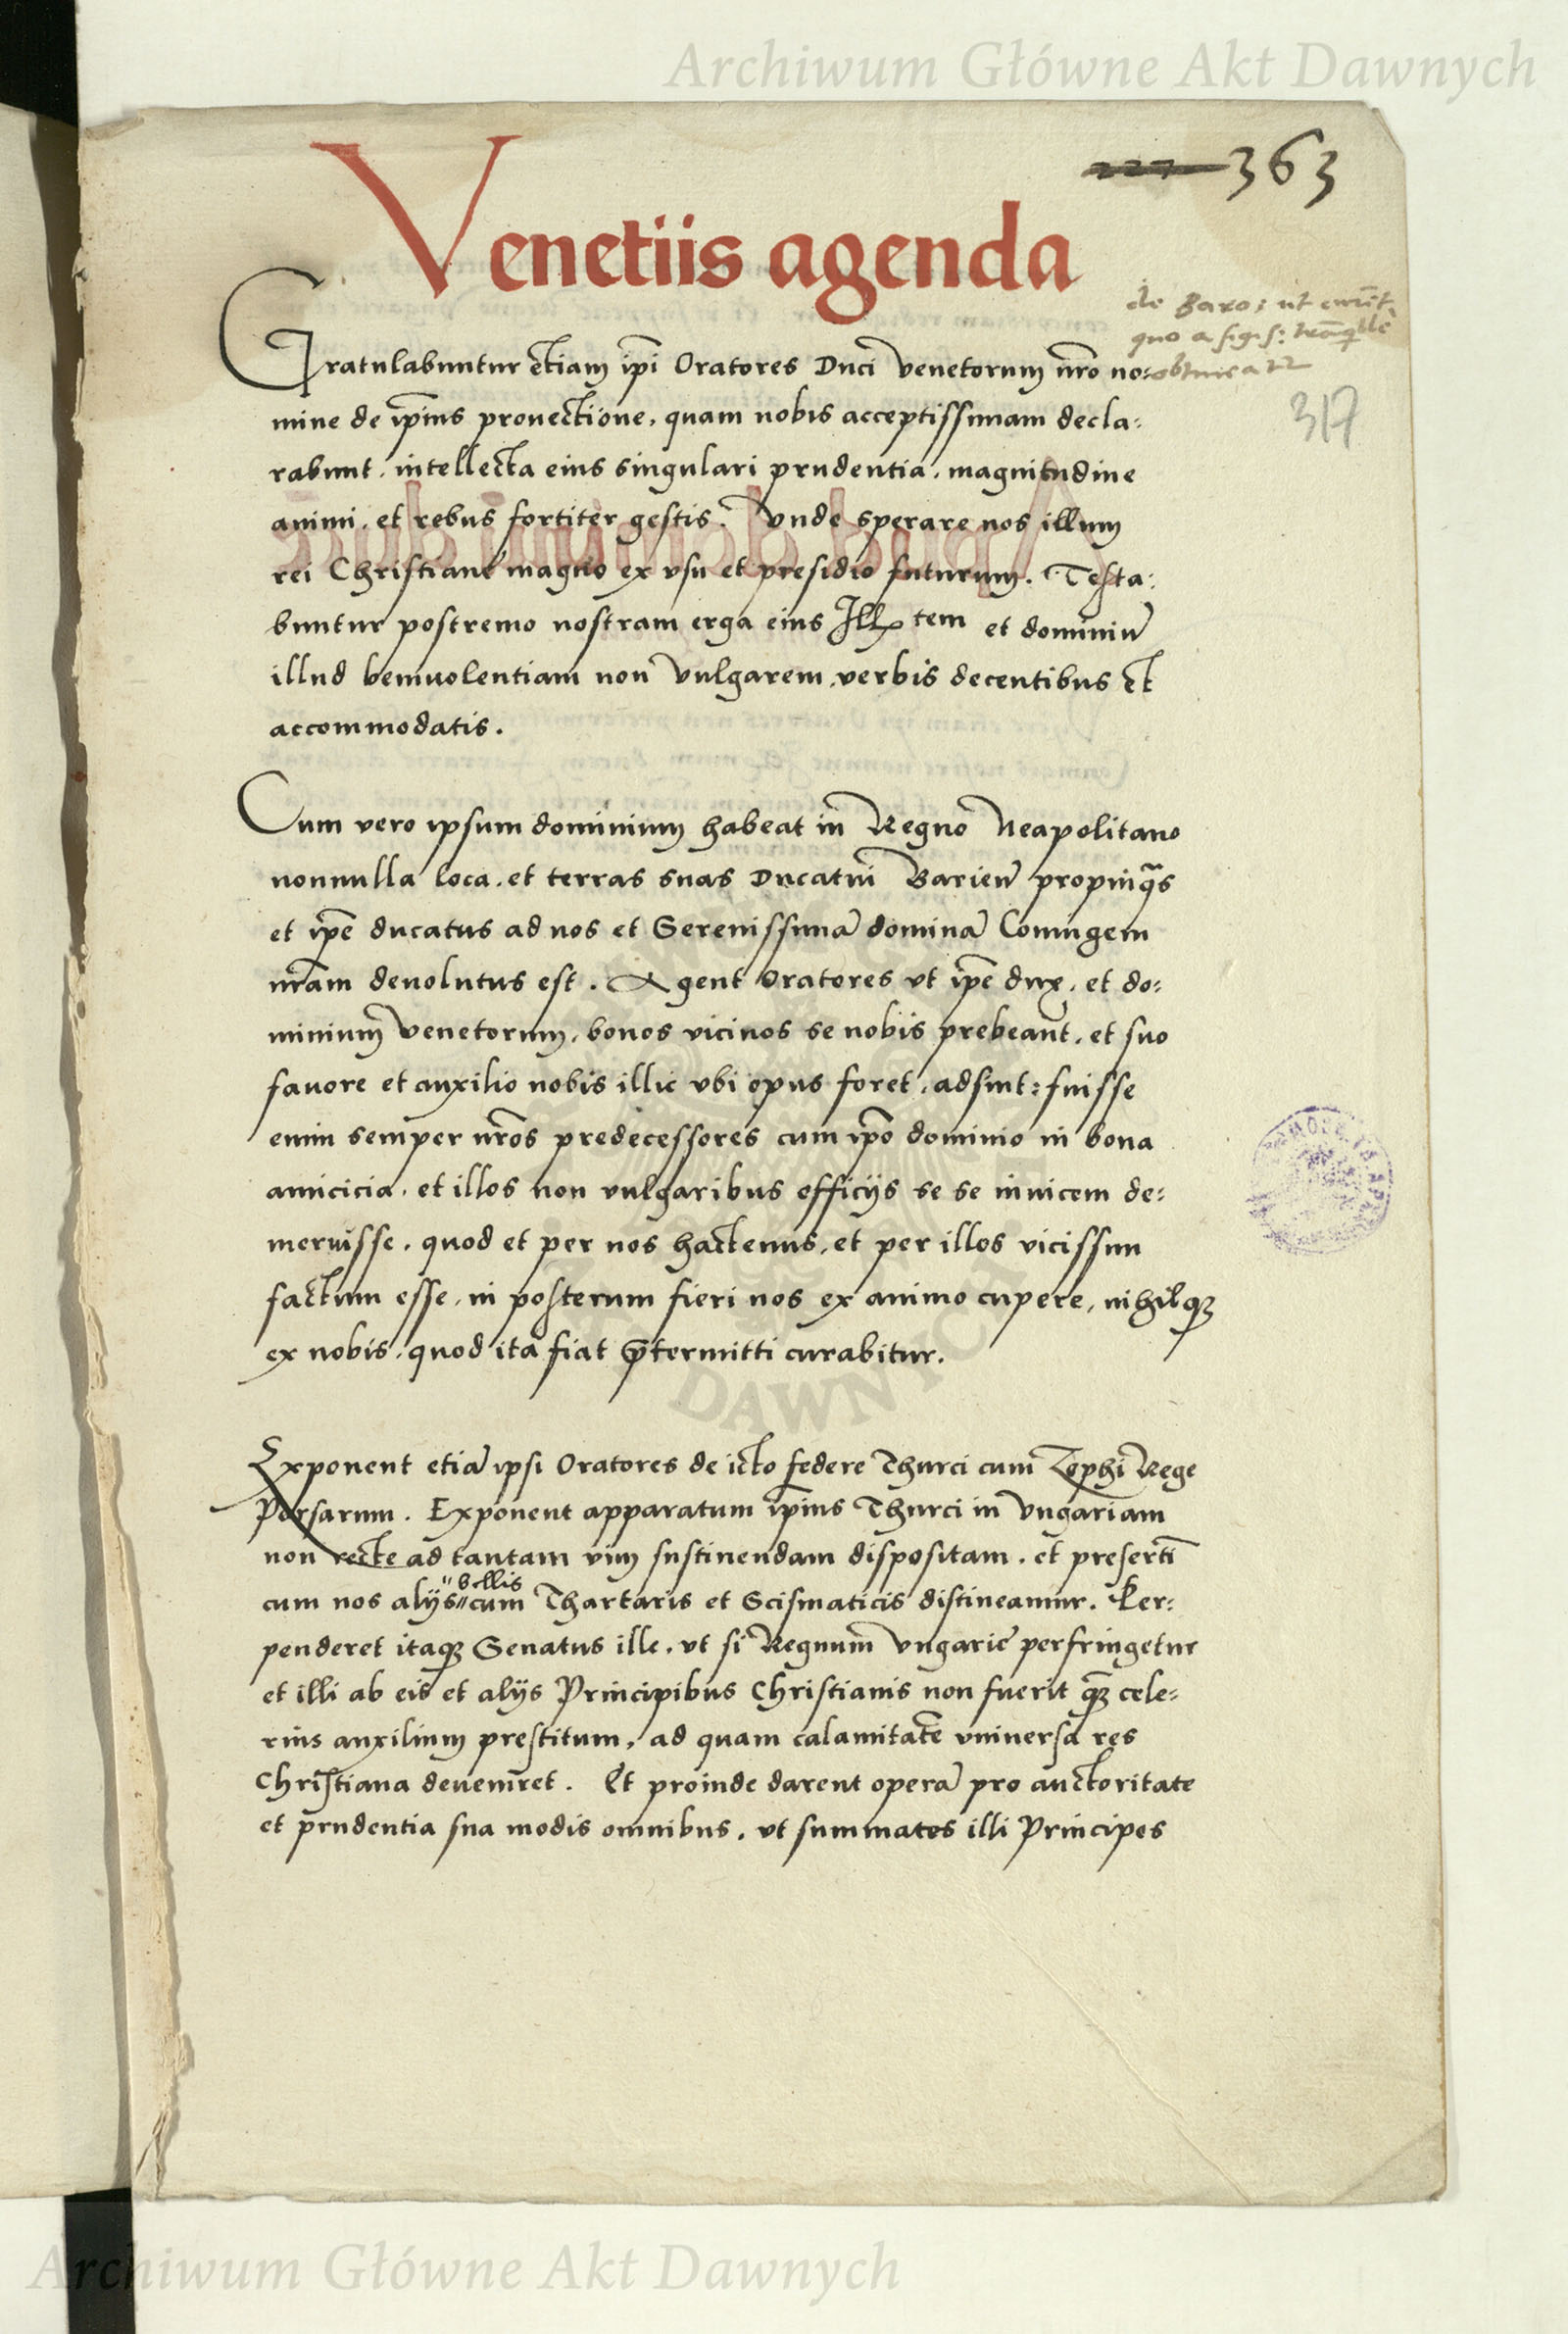 Archiwum Główne Akt Dawnych
363
Venetiis agenda
de Baro: ut
quo a
317
Gratulabuntur etiam ip̄i Oratores Duci Venetorum nr̄o no:
mine de ip̄ius prouectione, quam nobis acceptissimam decla:
rabunt, intellecta eius singulari prudentia, magnitudine
animi, et rebus fortiter gestis. Vnde sperare nos illum
rei Christiane magno ex vsu et presidio futurum. Testa:
buntur postremo nostram erga eius Ill tem et dominiū
illud beniuolentiam non vulgarem, verbis decentibus et
accommodatis.
Cum vero ipsum dominium habeat in Regno Neapolitano
nonnulla loca, et terras suas Ducatui Barieñ propinq̄s
et ip̄e ducatus ad nos et Serenissimā dominā Coniugem
nr̄am deuolutus est. Agent Oratores vt ip̄e dux, et do:
minium Venetorum, bonos vicinos se nobis prebeant, et suo
fauore et auxilio nobis illic vbi opus foret, adsint: fuisse
enim semper nr̄os predecessores cum ip̄o dominio in bona
amicicia, et illos non vulgaribus officijs se se inuicem de:
meruisse, quod et per nos hactenus, et per illos vicissim
factum esse, in posterum fieri nos ex animo cupere, nihilqꝫ
ex nobis, quod ita fiat p̄termitti curabitur.
Exponent etiā ipsi Oratores de icto federe Thurci cum Zophi Rege
Persarum. Exponent apparatum ip̄ius Thurci in Vngariam
non recte ad tantam vim sustinendam dispositam, et presertī
bellis
cum nos alijs cum Thartaris et Scismaticis distineamur. Per:
penderet itaqꝫ Senatus ille, vt si Regnum Vngarie perfringetur
et illi ab eis et alijs Principibus Christianis non fuerit q̄ꝫ cele:
rius auxilium prestitum, ad quam calamitatē vniuersa res
Christiana deueniret. Et proinde darent operā pro auctoritate
et prudentia sua modis omnibus, vt summates illi Principes
DAWNYCH
Archiwum Główne Akt Dawnych